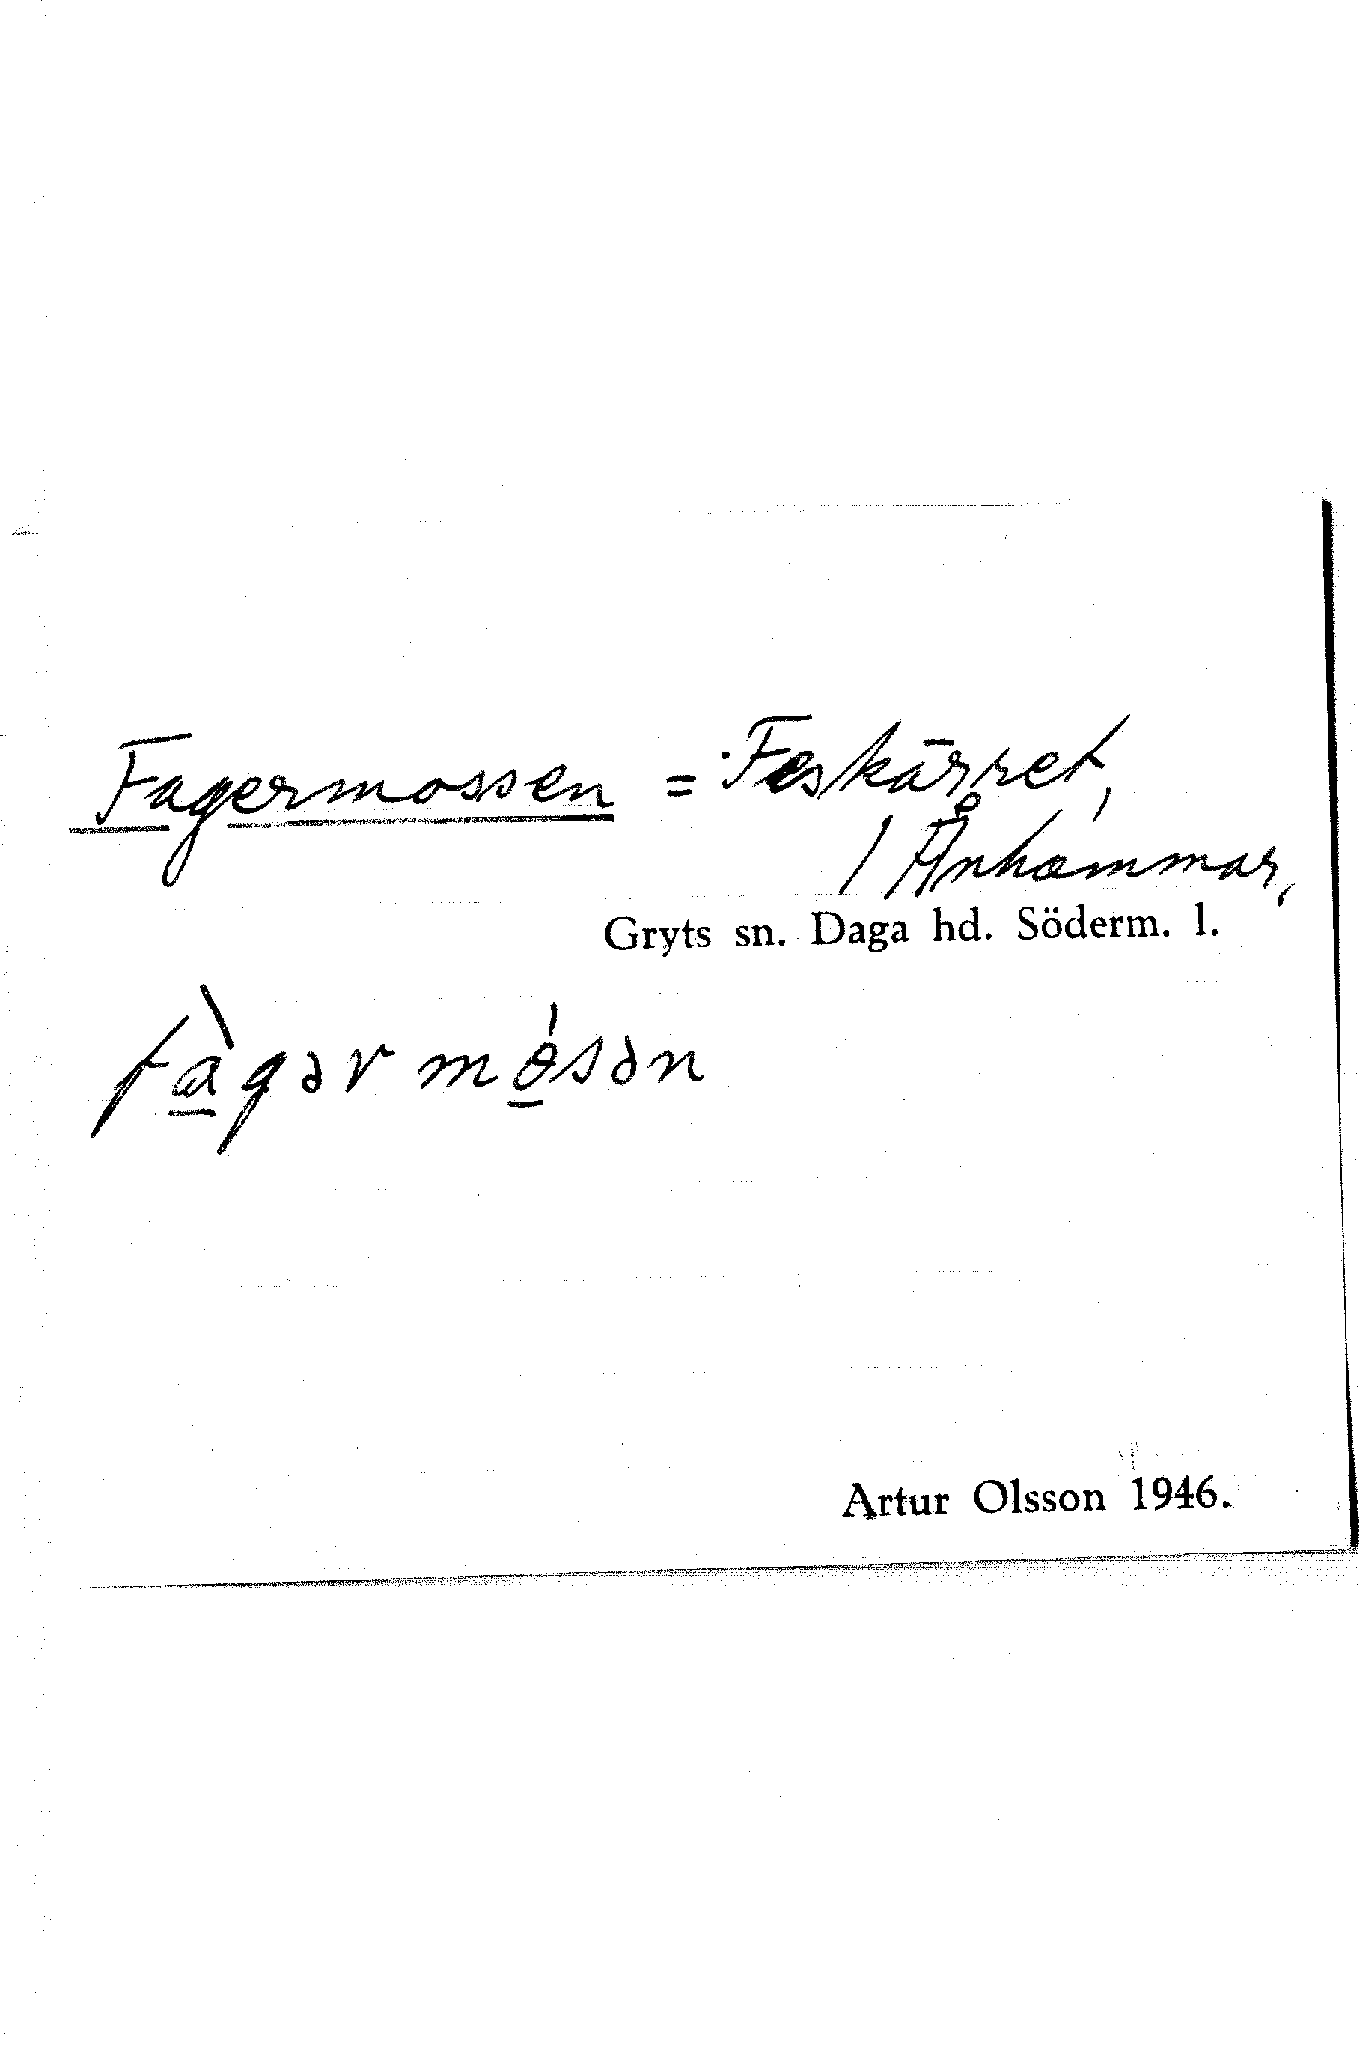 Fagermossen = Feskärret,
/ Ånhammar,
Gryts sn. Daga hd. Söderm. l.
fàgər mósən
Artur Olsson 1946.